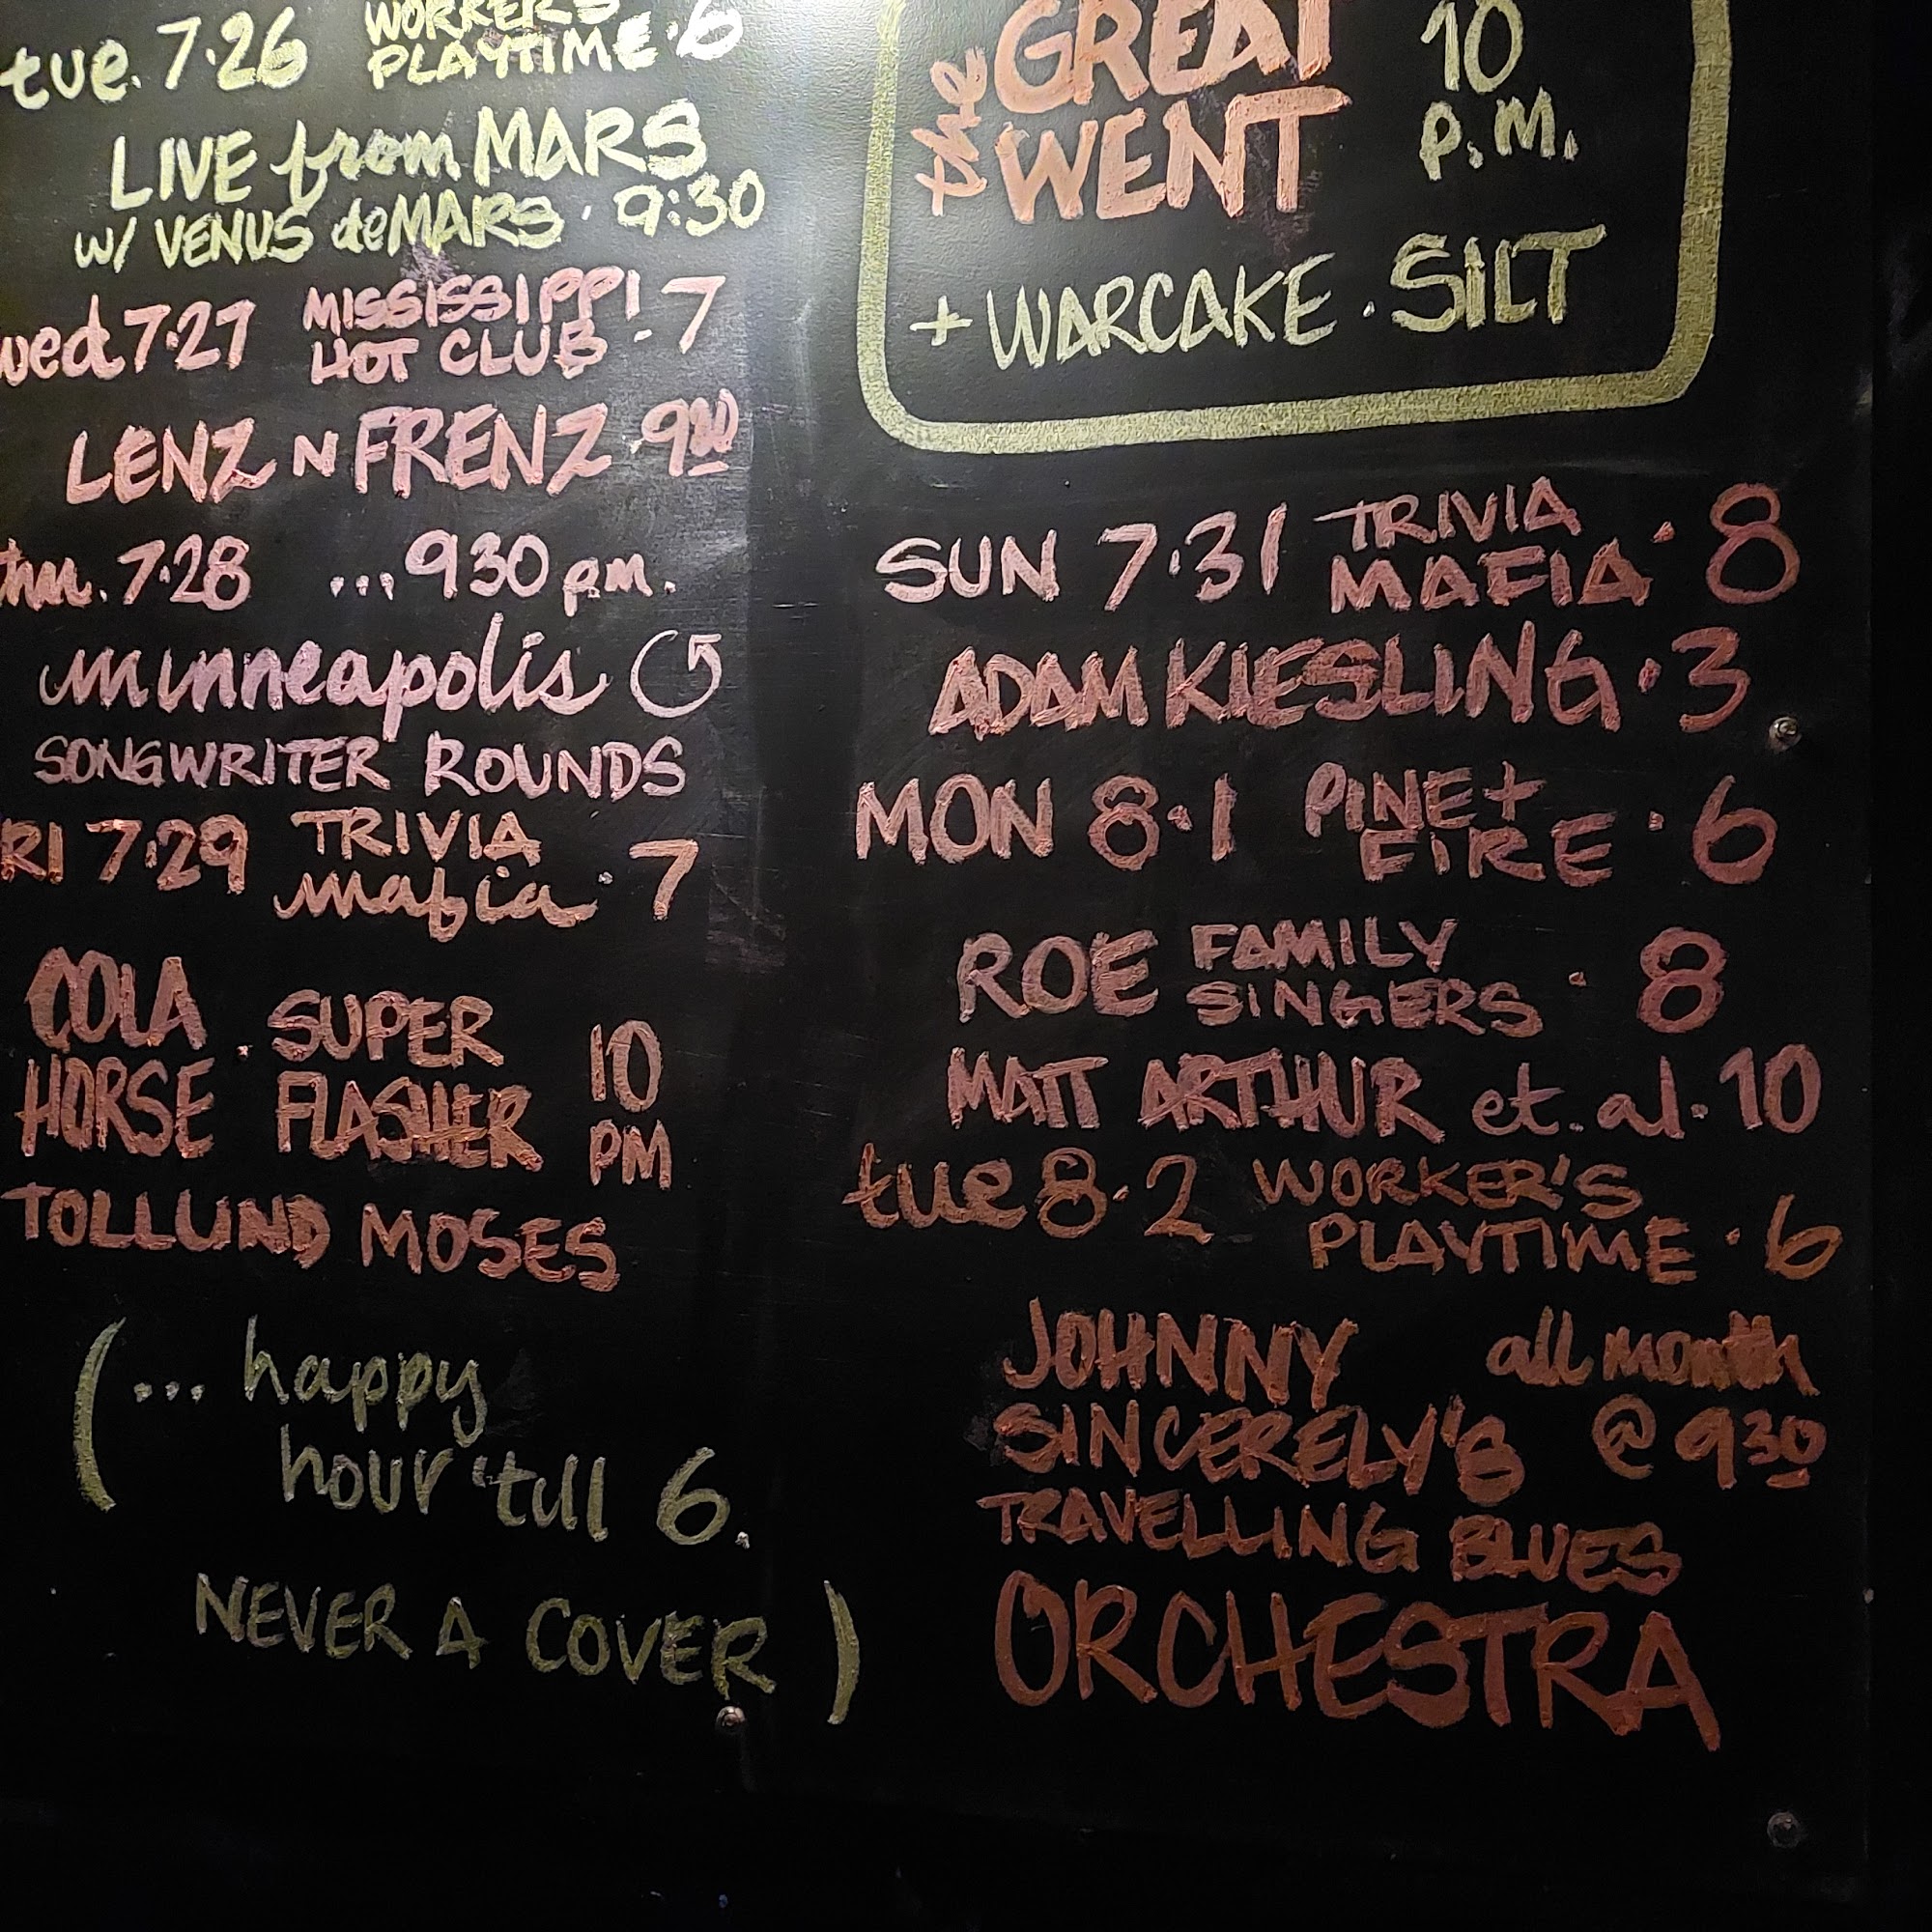 tue. 7·26 WORKER'S
PLAYTIME · 6
LIVE from MARS
w/ VENUS deMARS · 9:30
wed 7·27 MISSISSIPPI
HOT CLUB · 7
LENZ N FRENZ 9 00
thu. 7·28 ...930 pm.
minneapolis
SONGWRITER ROUNDS
RI 7·29 TRIVIA
mafia · 7
COLA
HORSE · SUPER
FLASHER 10
PM
TOLLUND MOSES
(... happy
hour 'till 6.
NEVER A COVER )
the GREAT
WENT
10
P.M.
+ WARCAKE · SILT
SUN 7·31 TRIVIA
MAFIA · 8
ADAM KIESLING · 3
MON 8·1 PINE +
FIRE · 6
ROE FAMILY
SINGERS · 8
MATT ARTHUR et. al · 10
tue 8·2 WORKER'S
PLAYTIME · 6
JOHNNY
SINCERELY'S
all month
@ 930
TRAVELLING BLUES
ORCHESTRA